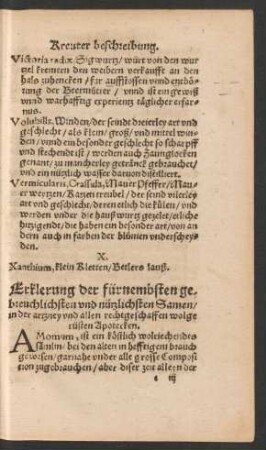 Kreuter beschreibung.
Victoria radix. Sigwurtz/ würt von den wur
tzel kremern den weibern verkaufft an den
hals zuhencken/ für auffstossen vnd entbör-
ung der Beermütter/ vnnd ist ein gewiß
vnnd warhafftig experientz täglicher erfar-
nus.
Volubilis. Winden/ der seind dreierley art vnd
geschlecht/ als klein/ groß/ vnd mittel win-
den/ vnnd ein besonder geschlecht so scharpff
vnd stechend ist/ werden auch Zaunglocken
genant/ zu mancherley getränck gebrauchet/
vnd ein nützlich wasser daruon distilliert.
Vermicularis. Crassula, Maur Pfeffer/ Mau-
er wertzen/ Katzen treubel/ der send vilerley
art vnd geschlecht/ deren etlich die külen/ vnd
werden vnder die haußwurtz gezelet/ etliche
hitzigendt/ die haben ein besonder art/ von an
dern auch in farben der blümen vnderschey-
den.
X.
Xanthium, klein Kletten/ Betlers lauß.
Erklerung der fürnembsten ge-
breuchlichsten vnd nützlichsten Samen/
in der artzney vnd allen rechtgeschaffen wolge
rüsten Apotecken.
AMomum, ist ein köstlich wolriechendes
bei den alten in hefftigem brauch
gewesen/ garnahe vnder alle grosse Composi
tion zugebrauchen/ aber diser zeit alle in der
iij